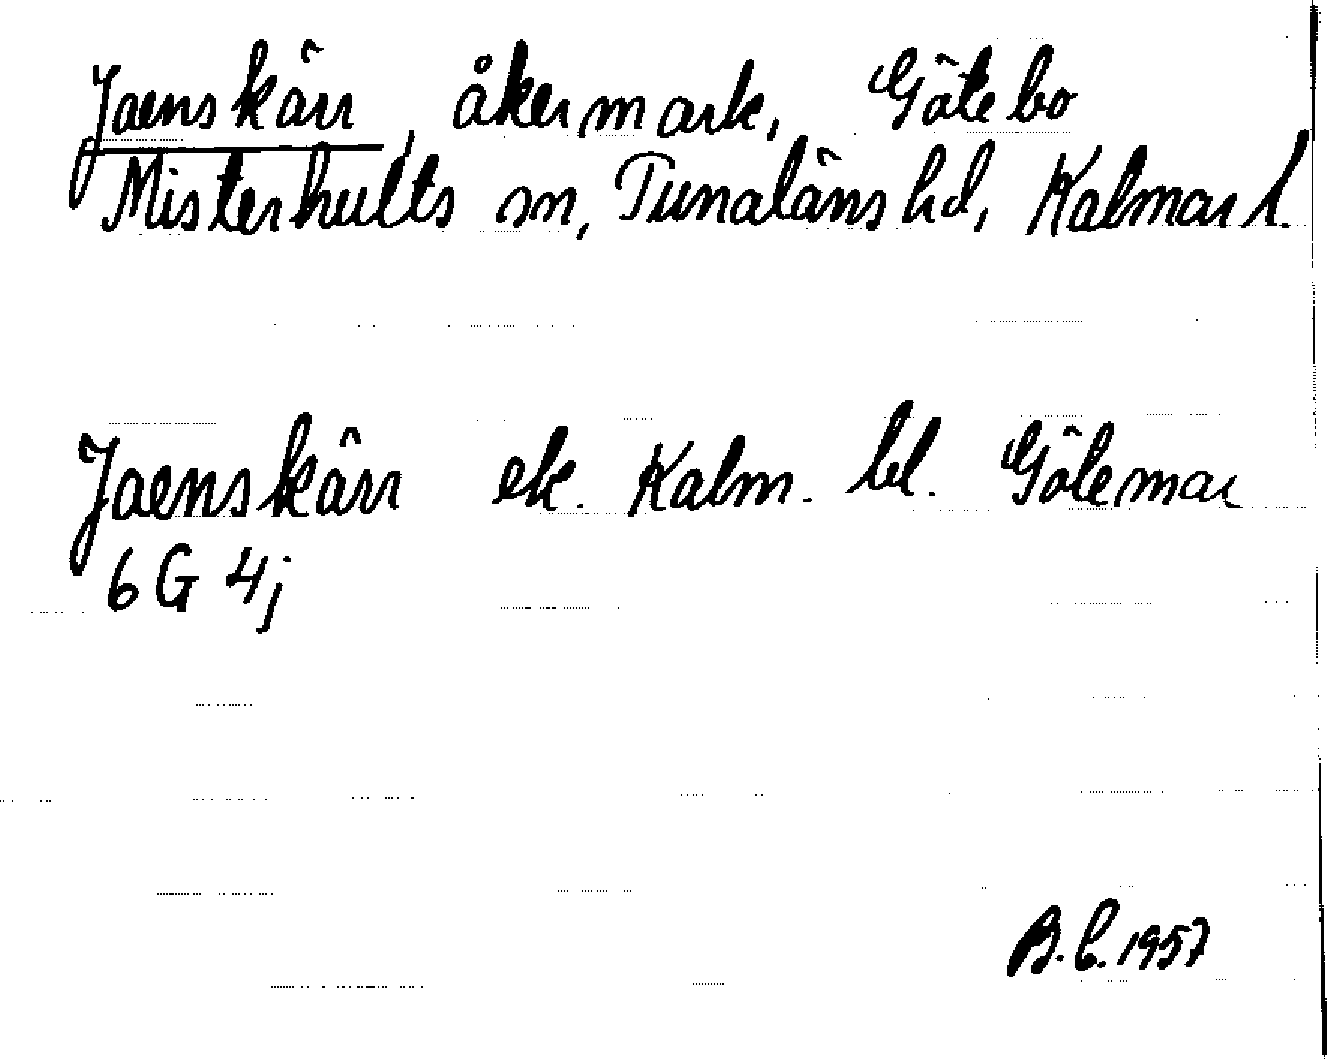 Jaenskärr, åkermark, Götebo
Misterhults sn, Tunaläns hd, Kalmar l.
Jaenskärr ek. Kalm. bl. Götemar
6 G 4j
B.C. 1957